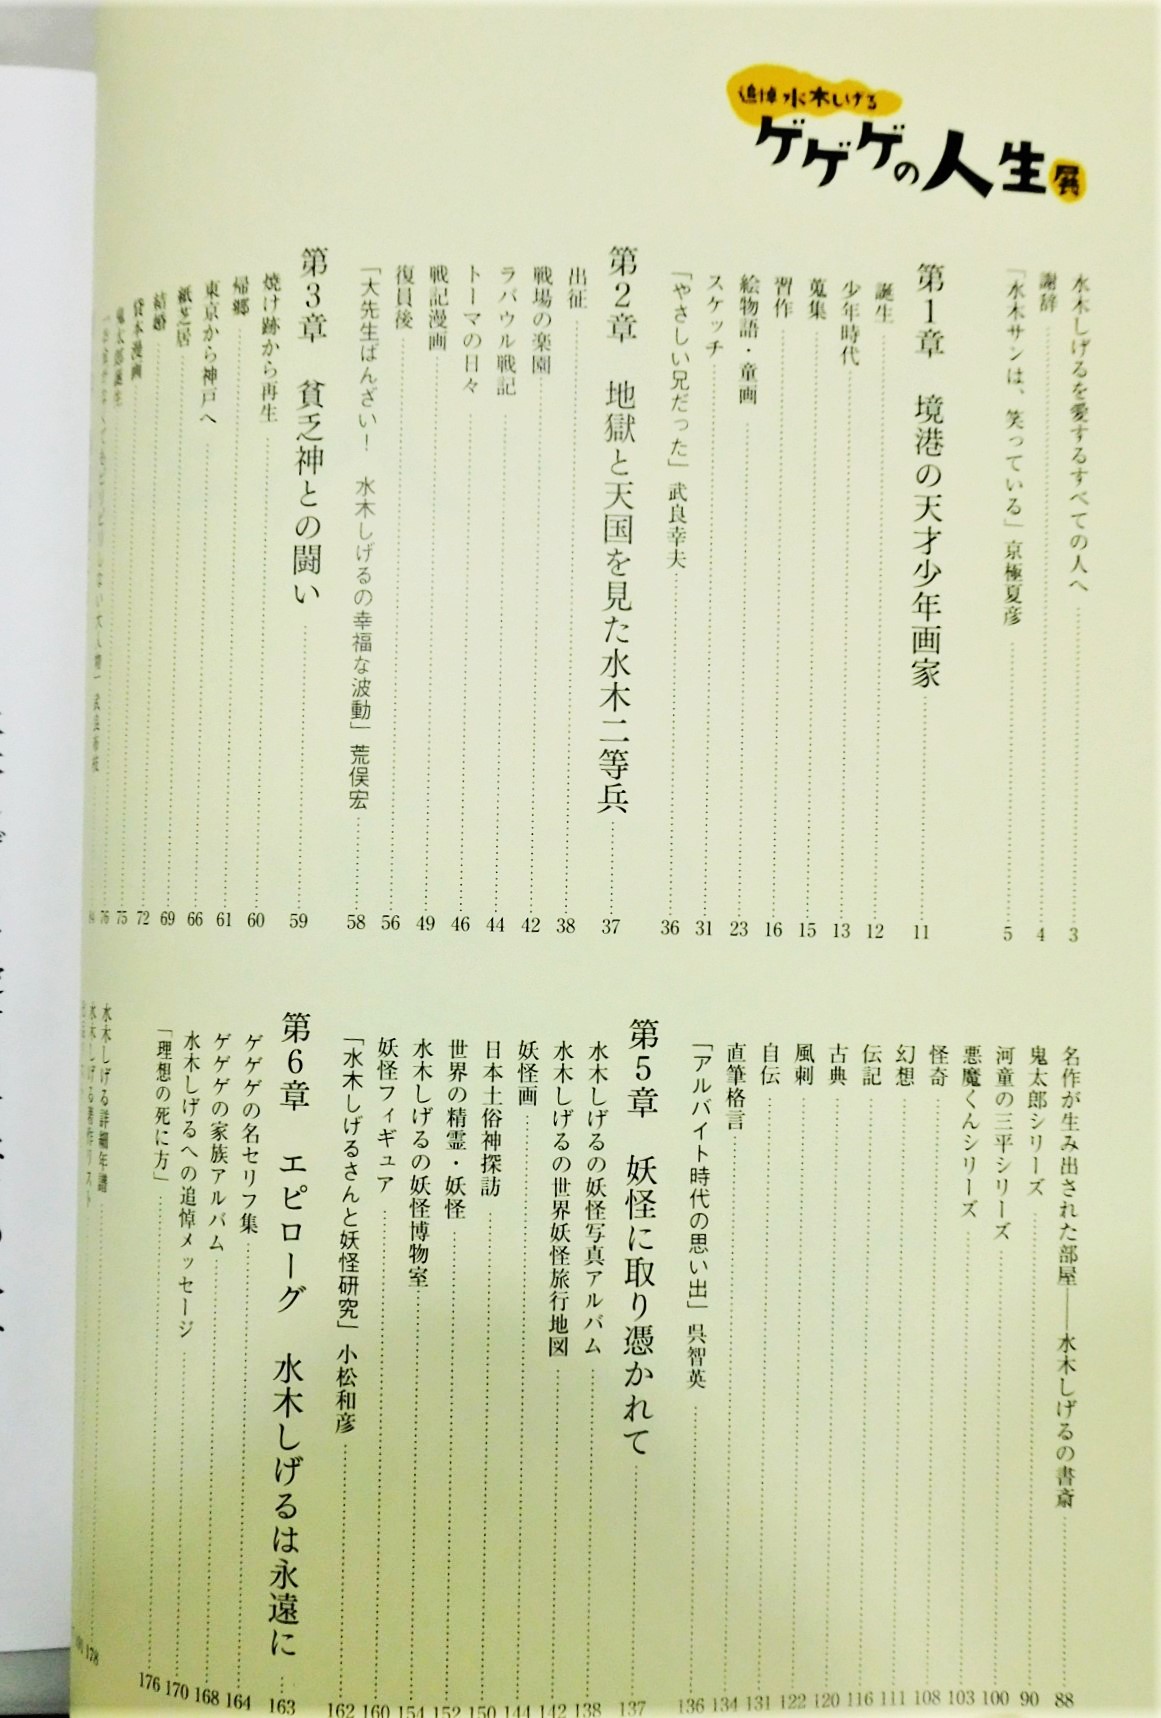 追悼 水木しげる
ゲゲゲの人生展
水木しげるを愛するすべての人へ 3
謝辞 4
「水木サンは、笑っている」京極夏彦 5
第1章 境港の天才少年画家 11
誕生 12
少年時代 13
蒐集 15
習作 16
絵物語・童画 23
スケッチ 31
「やさしい兄だった」武良幸夫 36
第2章 地獄と天国を見た水木二等兵 37
出征 38
戦場の楽園 42
ラバウル戦記 44
トーマの日々 46
戦記漫画 49
復員後 56
「大先生ばんざい! 水木しげるの幸福な波動」荒俣宏 58
第3章 貧乏神との闘い 59
焼け跡から再生 60
帰郷 61
東京から神戸へ 66
紙芝居 69
結婚 72
貸本漫画 75
鬼太郎誕生 76
名作が生み出された部屋――水木しげるの書斎 88
鬼太郎シリーズ 90
河童の三平シリーズ 100
悪魔くんシリーズ 103
怪奇 108
幻想 111
伝記 116
古典 120
風刺 122
自伝 131
直筆格言 134
「アルバイト時代の思い出」呉智英 136
第5章 妖怪に取り憑かれて 137
水木しげるの妖怪写真アルバム 138
水木しげるの世界妖怪旅行地図 142
妖怪画 144
日本土俗神探訪 150
世界の精霊・妖怪 152
水木しげるの妖怪博物室 154
妖怪フィギュア 160
「水木しげるさんと妖怪研究」小松和彦 162
第6章 エピローグ 水木しげるは永遠に 163
ゲゲゲの名セリフ集 164
ゲゲゲの家族アルバム 168
水木しげるへの追悼メッセージ 170
「理想の死に方」 176
水木しげる詳細年譜 178
水木しげる著作リスト